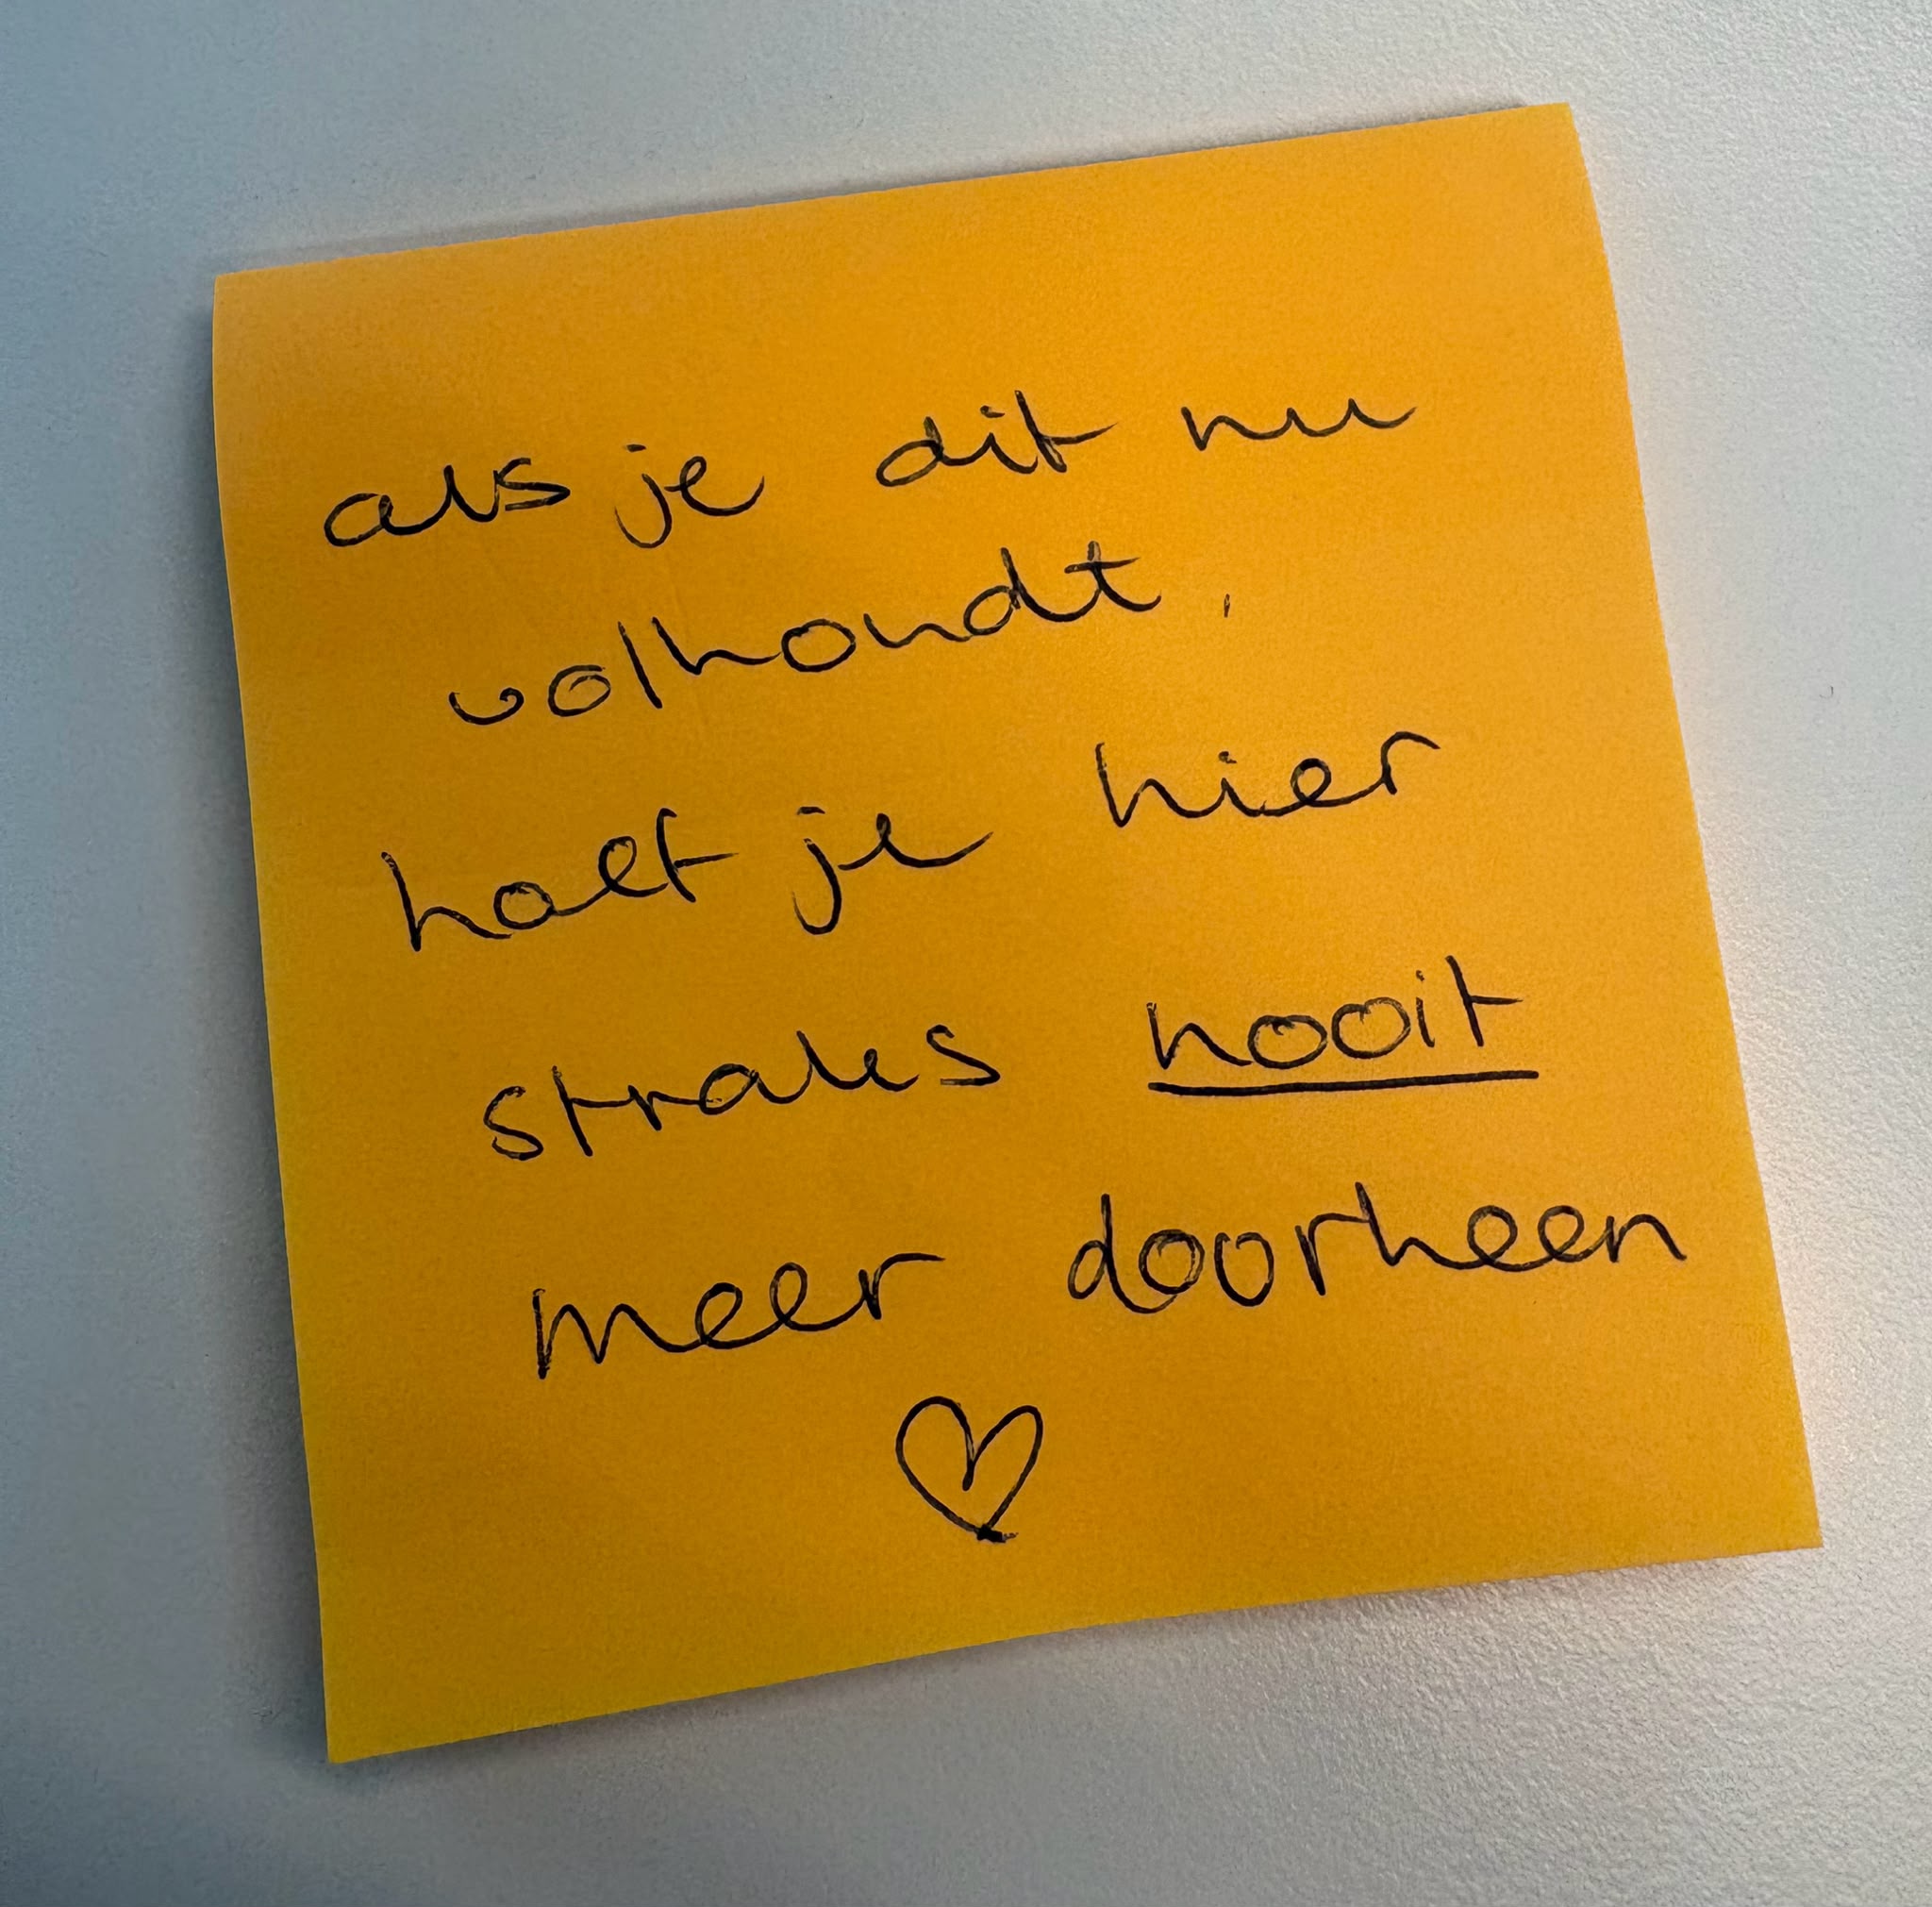 als je dit nu
volhoudt,
hoeft je hier
straks nooit
meer doorheen
♡